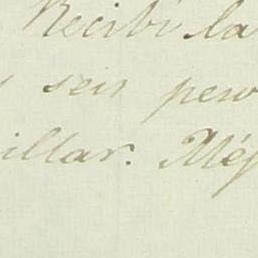 Recibí la
seis pesos
illar. Méj